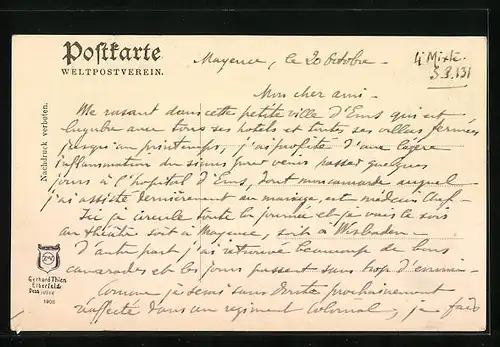 Postkarte
WELTPOSTVEREIN.
Nachdruck verboten.
Mayence, le 20 Octobre –
4 Mixte.
Mon cher ami –
Me rasant dans cette petite ville d'Ems qui est
lugubre avec tous ses hotels et toutes ses villas fermées
jusqu'au printemps, j'ai profité d'une légère
inflammation du sinus pour venir passer quelques
jours à l'hopital d'Ems, dont mon camarade auquel
j'ai assisté dernièrement au mariage, est médecin chef –
Ici je circule toute la journée et je vais le soir
au théatre soit à Mayence, soit à Wisbaden –
D'autre part j'ai retrouvé beaucoup de bons
camarades et les jours passent sans trop d'ennui –
Comme je serai sans doute prochainement
réaffecté dans un régiment colonial, je fais
Gerhard Thien
Elberfeld
1905